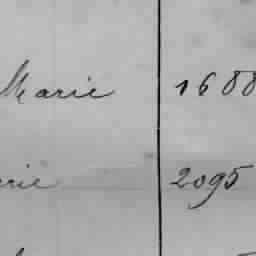 Marie 1688
rie 2095